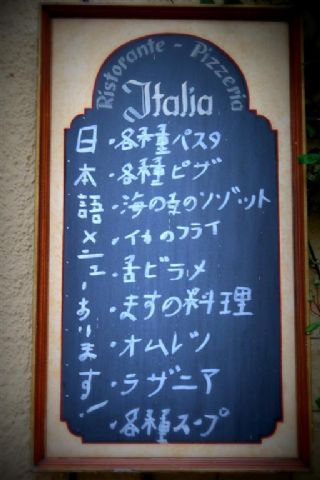 Ristorante - Pizzeria
Italia
日本語メニューあります!
・各種パスタ
・各種ピザ
・海の幸のソゾット
・イカのフライ
・舌ビラメ
・ますの料理
・オムレツ
・ラザニア
・各種スープ